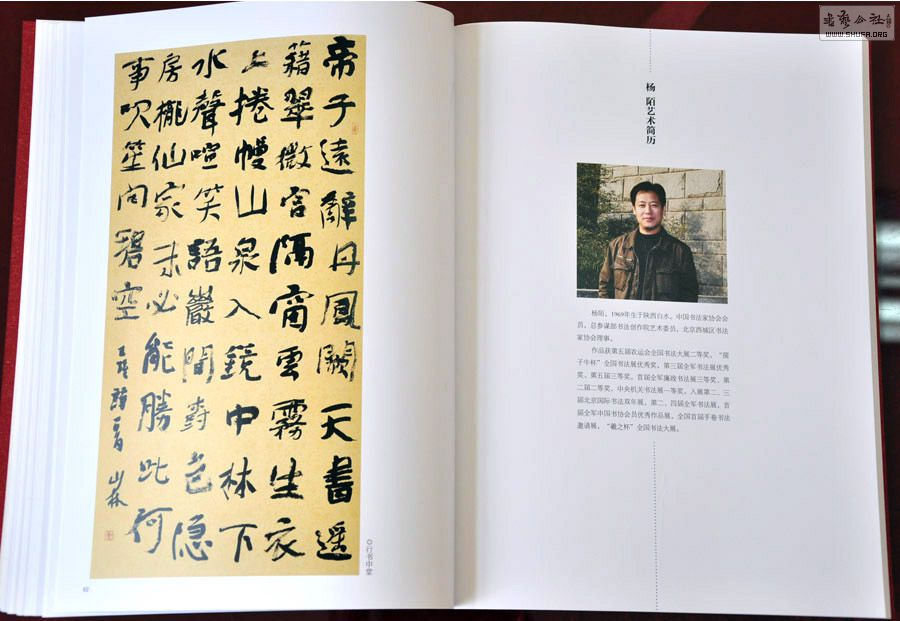 帝子遠辭丹鳳闕天書遥
籍翠微宫隔窗雲霧生衣
上捲幔山泉入鏡中林下
水聲喧笑語巖間樹色隐
房櫳仙家未必能勝此何
事吹笙向碧空
王維詩一首
◎行书中堂
60
杨 陌艺术简历
杨陌，1969年生于陕西白水。中国书法家协会会
员，总参谋部书法创作院艺术委员，北京西城区书法
家协会理事。
作品获第五届农运会全国书法大展二等奖，“孺
子牛杯”全国书法展优秀奖，第三届全军书法展优秀
奖、第五届三等奖，首届全军廉政书法展三等奖、第
二届二等奖，中央机关书法展一等奖，入展第二、三
届北京国际书法双年展，第二、四届全军书法展，首
届全军中国书协会员优秀作品展，全国首届手卷书法
邀请展，“羲之杯”全国书法大展。
WWW.SHUFA.ORG